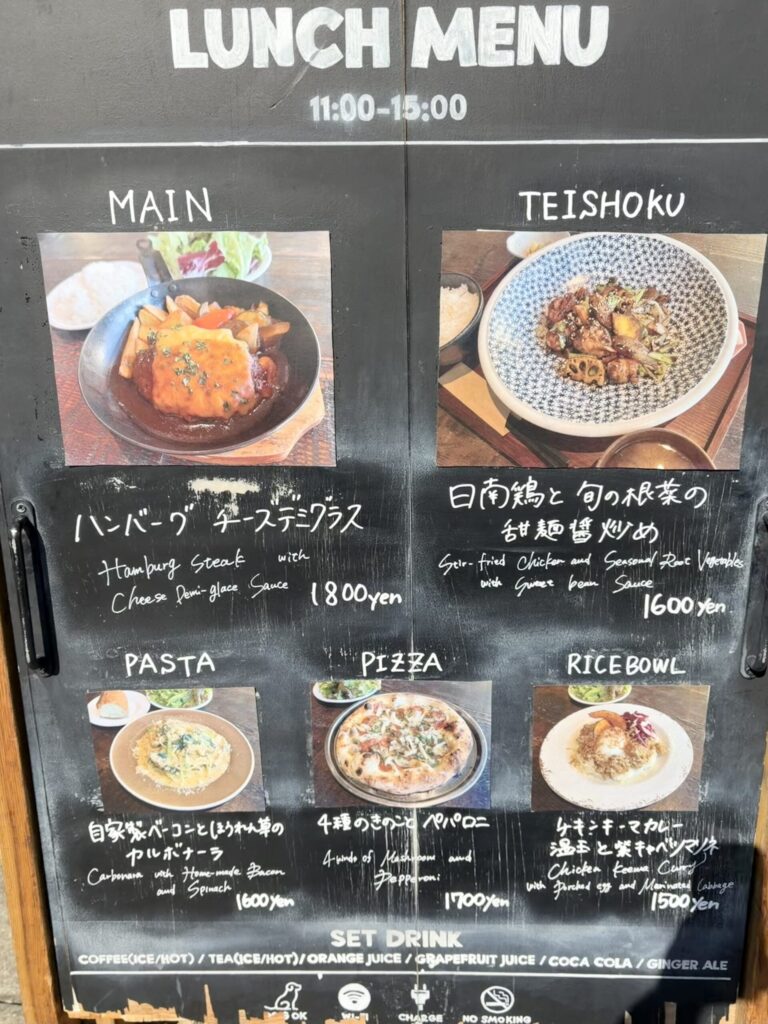 LUNCH MENU
11:00-15:00
MAIN
TEISHOKU
ハンバーグ チーズデミグラス
Hamburg steak with
Cheese Demi-glace Sauce
1800yen
日南鶏と旬の根菜の
甜麺醤炒め
Stir-fried Chicken and Seasonal Root Vegetables
with Sweet bean Sauce
1600yen
PASTA
自家製ベーコンとほうれん草の
カルボナーラ
Carbonara with Home-made Bacon
and Spinach
1600yen
PIZZA
4種のきのことペパロニ
4 kinds of Mushroom and
Pepperoni
1700yen
RICEBOWL
チキンキーマカレー
温玉と紫キャベツマリネ
Chicken Keema Curry
with Porched egg and Marinated Cabbage
1500yen
SET DRINK
COFFEE(ICE/HOT) / TEA(ICE/HOT) / ORANGE JUICE / GRAPEFRUIT JUICE / COCA COLA / GINGER ALE
OK WI-FI CHARGE NO SMOKING